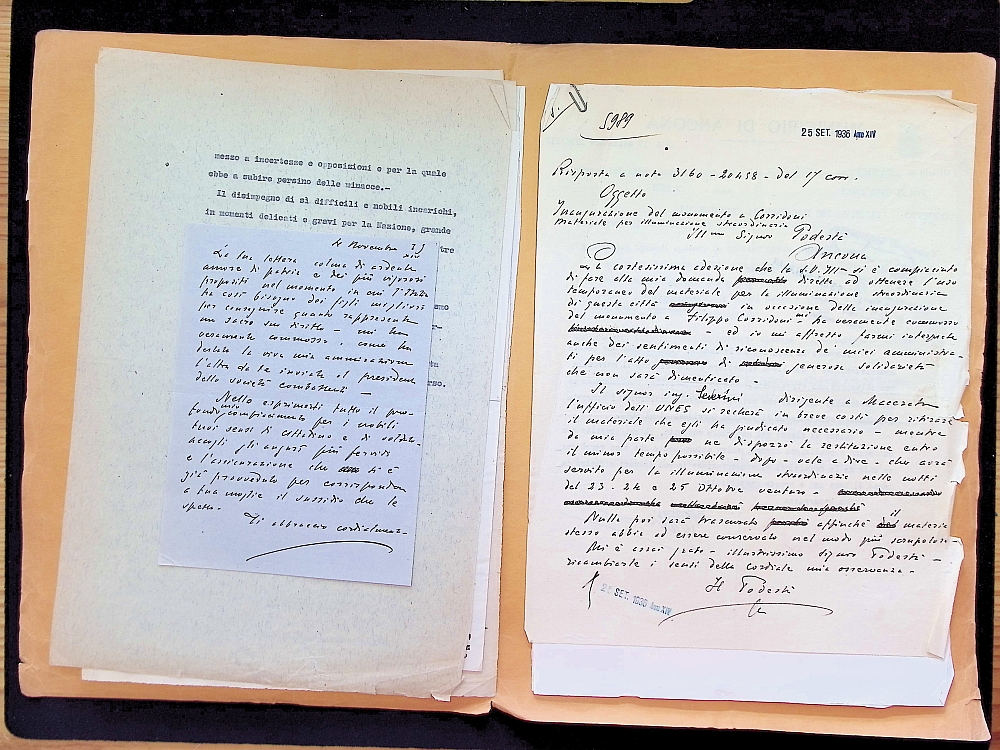 mezzo a incertezze e opposizioni e per la quale
ebbe a subire persino delle minacce.-
Il disimpegno di sì difficili e nobili incarichi,
in momenti delicati e gravi per la Nazione, grande
tre
smo
rso.
4 Novembre
XIV
La tua lettera colma di ardente
amore di patria e dei più vigorosi
propositi nel momento in cui l'Italia
ha così bisogno dei figli migliori
per conseguire quanto rappresenta
un sacro suo diritto - mi ha
veramente commosso - come ha
destato la viva mia ammirazione
l'altra da te inviata al presidente
delle società combattenti -
Nello esprimerti tutto il pro-
fondo mio compiacimento per i nobili
tuoi sensi di cittadino e di solda-
accogli gli auguri più fervidi
e l'assicurazione che ti è
già provveduto per corrispondere
a tua moglie il sussidio che le
spetta.
Ti abbraccio cordialmen-
5989
25 SET. 1936 Anno XIV
Risposta a nota 3160 - 20458 - del 17 corr.
Oggetto
Inaugurazione del monumento a Corridoni
Materiale per illuminazione straordinaria
Ill mo Signor Podestà
Ancona
La cortesissima adesione che la S.V. Ill- si è compiaciuto
di fare alla mia domanda diretta ad ottenere l'uso
temporaneo del materiale per la illuminazione straordinaria
di questa città in occasione della inaugurazione
del monumento a Filippo Corridoni mi ha veramente commosso
- ed io mi affretto farmi interprete
anche dei sentimenti di riconoscenza de' miei amministra-
ti per l'atto di generosa solidarietà
che non sarà dimenticato -
Il signor ing. Severini dirigente a Macerata
l'ufficio dell'UNES si recherà in breve costì per ritirare
il materiale che egli ha giudicato necessario - mentre
da mia parte ne disporrò la restituzione entro
il minor tempo possibile - dopo - vale a dire - che avrà
servito per la illuminazione straordinaria nelle notti
del 23 - 24 e 25 Ottobre venturo -
Nulla poi sarà trascurato affinchè il materiale
stesso abbia ad essere conservato nel modo più scrupoloso
Mi è assai grato - illustrissimo signor Podestà -
ricambiarle i sensi della cordiale mia osservanza -
Il Podestà
25 SET. 1936 Anno XIV